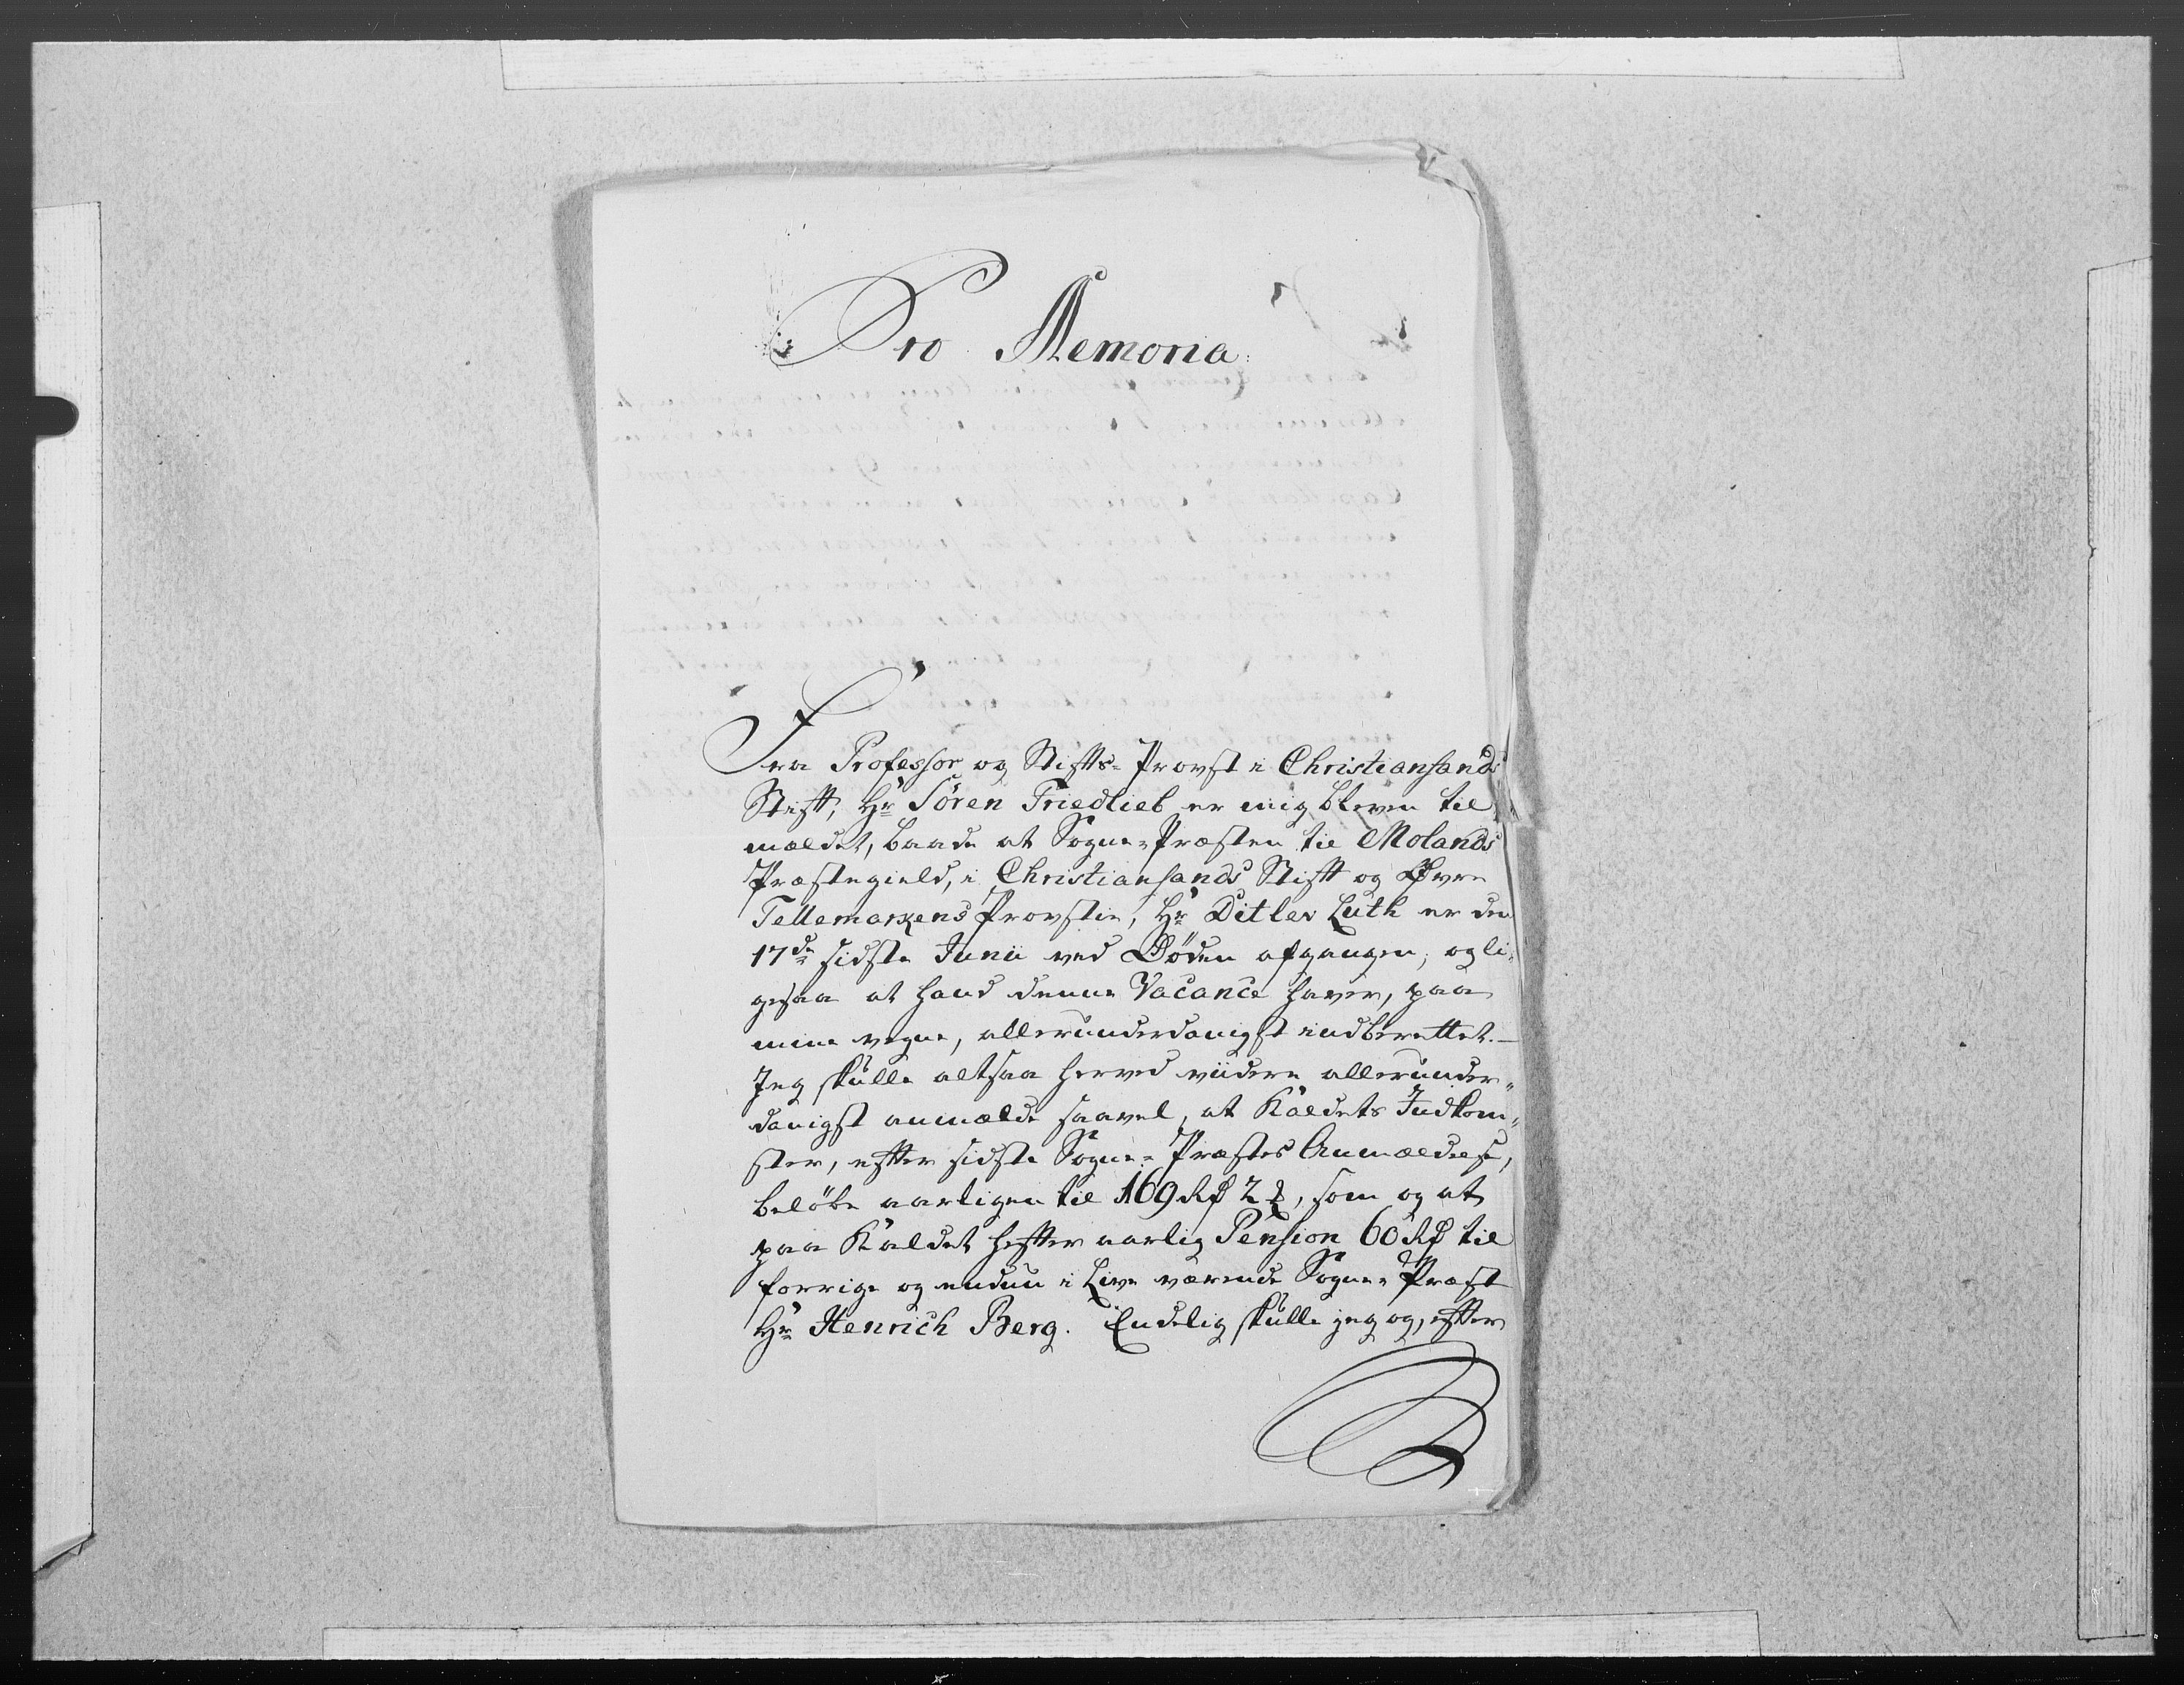 Pro Memoria
Fra Professor og Stifts-Provst i Christiansands
Stift, Hr Sören Friedlieb er mig bleven til
meldet, baade at Sogne-Præsten til Molands
Præstegield, i Christiansands Stift og Øvre
Tellemarkens Provstie, Hr Ditlev Luth er den
17de sidste Junii ved Døden afgangen, og li-
gesaa at hand denne Vacance haver, paa
mine vegne, allerunderdanigst indberettet.
Jeg skulle altsaa herved viidere allerunder-
danigst anmælde saavel, at Kaldets Indkom-
ster, efter sidste Sogne-Præstes Anmældelse,
beløbe aarligen til 169 Rd 2 ß, som og at
paa Kaldet hefter aarlig Pension 60 Rd til
forrige og endnu i Live værende Sogne-Præst
Hr Henrich Berg. Endelig skulle jeg og, efter